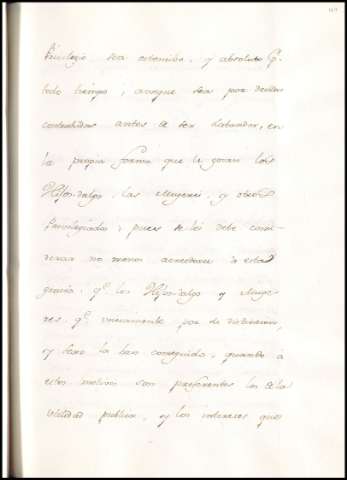 Privilegio sea estensibo, y absoluto p.
todo tiempo, aunque sea por deudas
contrahidas antes de ser Labrador, en
la propia forma que le gozan los
Hijos-dalgo, las Mujeres, y otros
Privilegiados; pues se les debe consi-
derar no menos acredores á esta
gracia, q.e los Hijos-dalgo y Muge-
res q.e unicamente por
y honor la han conseguido, quanto á
estos motivos son preferentes los de la
Utilidad publica, y los intereses que